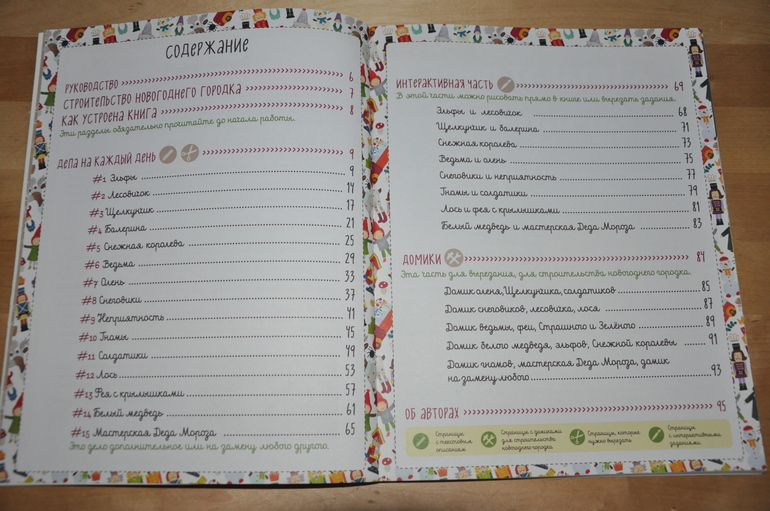 СОДЕРЖАНИЕ
РУКОВОДСТВО 6
СТРОИТЕЛЬСТВО НОВОГОДНЕГО ГОРОДКА 7
КАК УСТРОЕНА КНИГА 8
Эти разделы обязательно прочитайте до начала работы.
ДЕЛА НА КАЖДЫЙ ДЕНЬ 9
#1 Эльфы 9
#2 Лесовичок 14
#3 Щелкунчик 17
#4 Балерина 21
#5 Снежная королева 25
#6 Ведьма 29
#7 Олень 33
#8 Снеговики 37
#9 Неприятность 41
#10 Гномы 45
#11 Солдатики 49
#12 Лось 53
#13 Фея с крылышками 57
#14 Белый медведь 61
#15 Мастерская Деда Мороза 65
Это дело дополнительное или на замену любого другого.
ИНТЕРАКТИВНАЯ ЧАСТЬ 69
В этой части можно рисовать прямо в книге или вырезать задания.
Эльфы и лесовичок 68
Щелкунчик и балерина 71
Снежная королева 73
Ведьма и олень 75
Снеговики и неприятность 77
Гномы и солдатики 79
Лось и фея с крылышками 81
Белый медведь и мастерская Деда Мороза 83
ДОМИКИ 84
Эта часть для вырезания, для строительства новогоднего городка.
Домик оленя, Щелкунчика, солдатиков 85
Домик снеговиков, лесовичка, лося 87
Домик ведьмы, феи, Страшного и Зелёного 89
Домик белого медведя, эльфов, Снежной королевы 91
Домик гномов, мастерская Деда Мороза, домик
на замену любого 93
ОБ АВТОРАХ 95
Страницы
с текстовым
описанием
Страницы с домиками
для строительства
новогоднего городка
Страницы, которые
нужно вырезать
Страницы
с интерактивными
заданиями